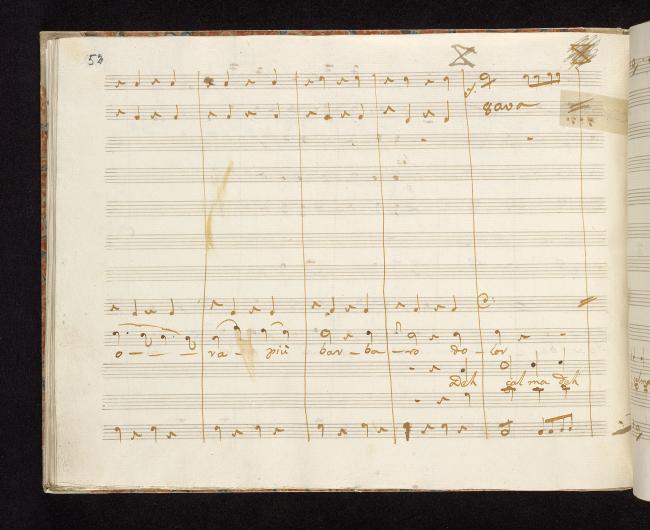 52
8ava
o - - - ra - più bar - ba - ro do - lor
Deh cal ma deh